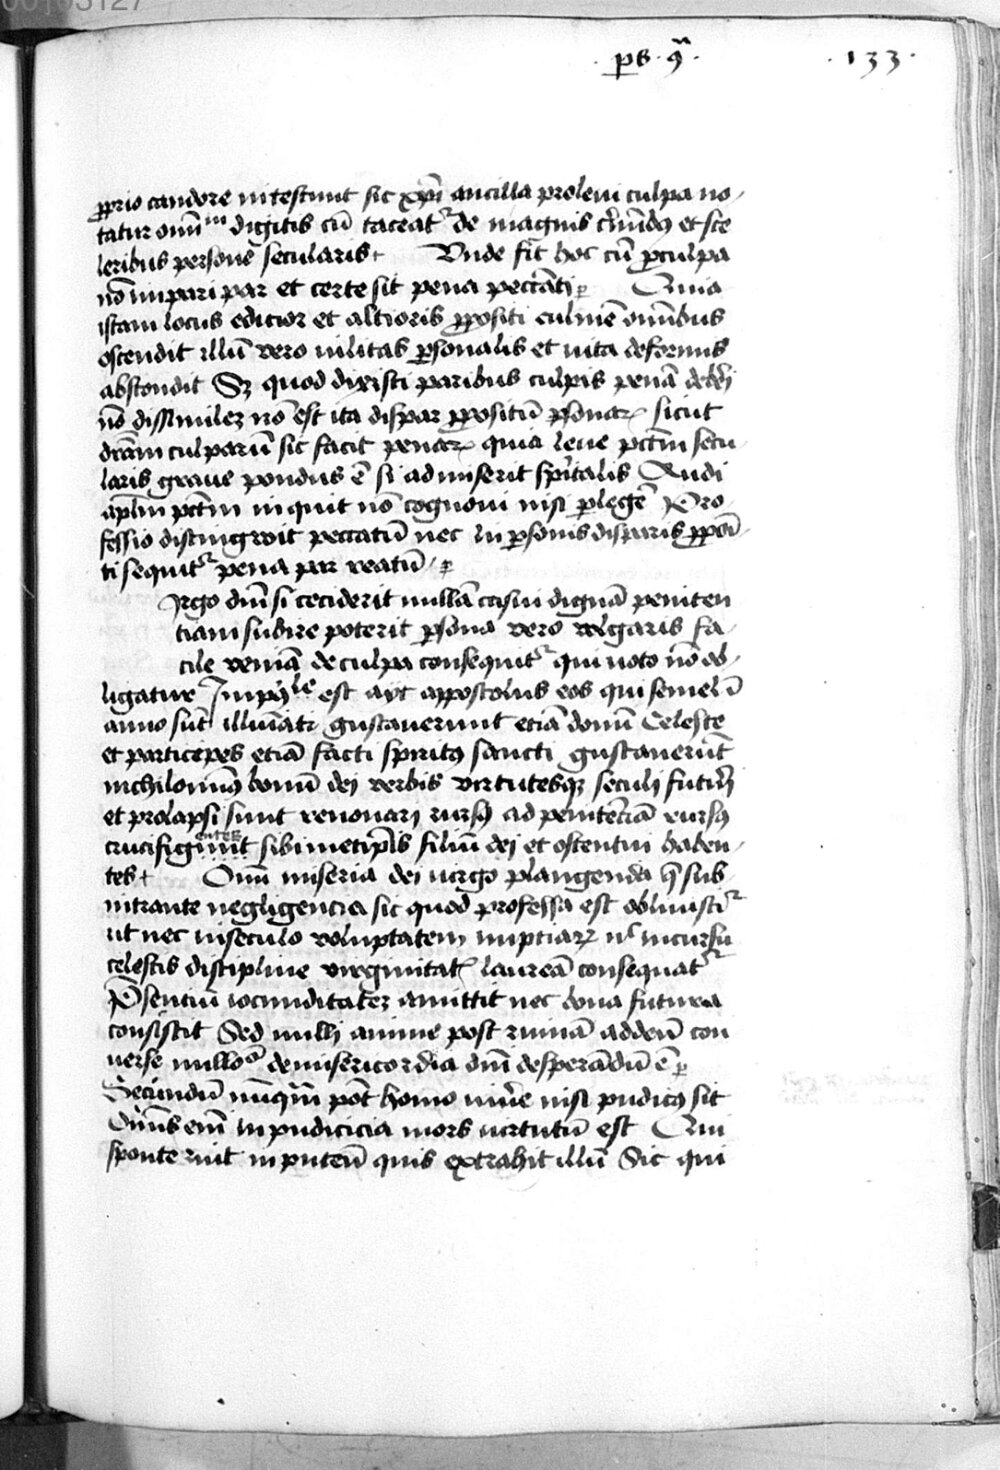 00103127
· ps · 9ᵃ · · 133 ·
ꝓprio candore nitescunt sic xp̄i ancilla pro leui culpa no-
tatur omīm digitis cū taceat᷑ de magnis c̄minibꝰ et sce
leribus persone secularis Unde fit hoc cū ꝓ culpa
nō impari par et certe sit pena peccāti Quia
istam locus edicior et altioris ꝓpositi culmē om̄ibus
ostendit illū vero uilitas ꝑsonalis et uita deformis
abscondit Sꝫ quod dixisti paribus culpis penā deb̄i
nō dissimileꝫ nō est ita dispar ꝓpositū ꝑsonaꝝ sicut
dr̄am culparū sic facit penaꝝ quia leue pctm̄ secu
laris graue pondus ē si admiserit sp̄ritalis Audi
aplm̄ pctm̄ inquit nō cognoui nisi ꝑ legē Pro-
fessio distingwit peccatū nec in ꝑsonis disparis ꝓpoi-
ti sequit᷑ pena par reatū
Jrgo dn̄i si ceciderit nullā casui dignā peniten
tiam subire poterit ꝑsona vero wlgaris fa-
cile veniā de culpa consequit᷑ qui uoto nō ob-
ligatur Jmpoile est ayt appostolus eos qui semel ī
anno sūt illuīati gustauerunt etiā donū Celeste
et participes etiā facti spiritꝰ sancti gustauerūt
nichilominꝰ bonū dei verbis virtutesqꝫ seculi futuri
et prolapsi sunt renouari rursꝰ ad penitēciā rursꝰ
crucifigunt enteꝫ sibimetip̄is filiū dei et ostentui haben-
tes Om̄i miseria dei uirgo plangenda q̄ sub-
intrante negligencia sic quod professa est obliuiscit᷑
ut nec in seculo voluptatem nuptiaꝝ nͨ in cursu
celestis discipline virginitatꝭ laureā consequat᷑
P̄sentiū iocunditateꝫ amittit nec bona futura
consistit Sed nulli anime post ruinā ad deū con
uerse nulloͦ de misericordia dn̄i desperādū ē
Secundū nūq̄m pōt homo iuuēe nisi pudicꝰ sit
Om̄is em̄ inpudicicia mors uirtutū est Qui
sponte ruit in puteū quis extrahit illū Sic qui